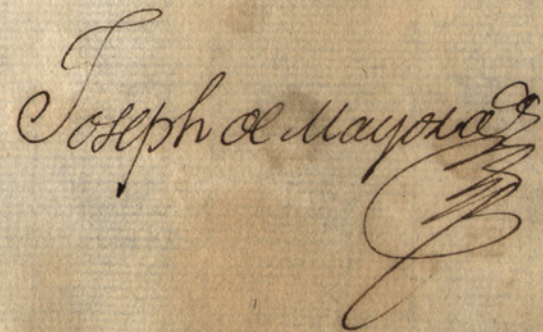 Joseph de Mayora